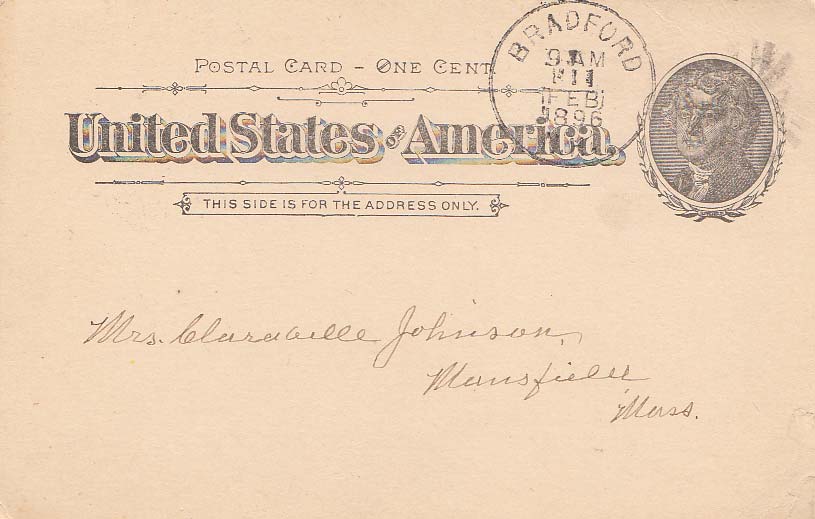 POSTAL CARD – ONE CENT
BRADFORD
9 AM
11
FEB
1896
United States of America.
THIS SIDE IS FOR THE ADDRESS ONLY.
Mrs. Clarabelle Johnson,
Mansfield
Mass.